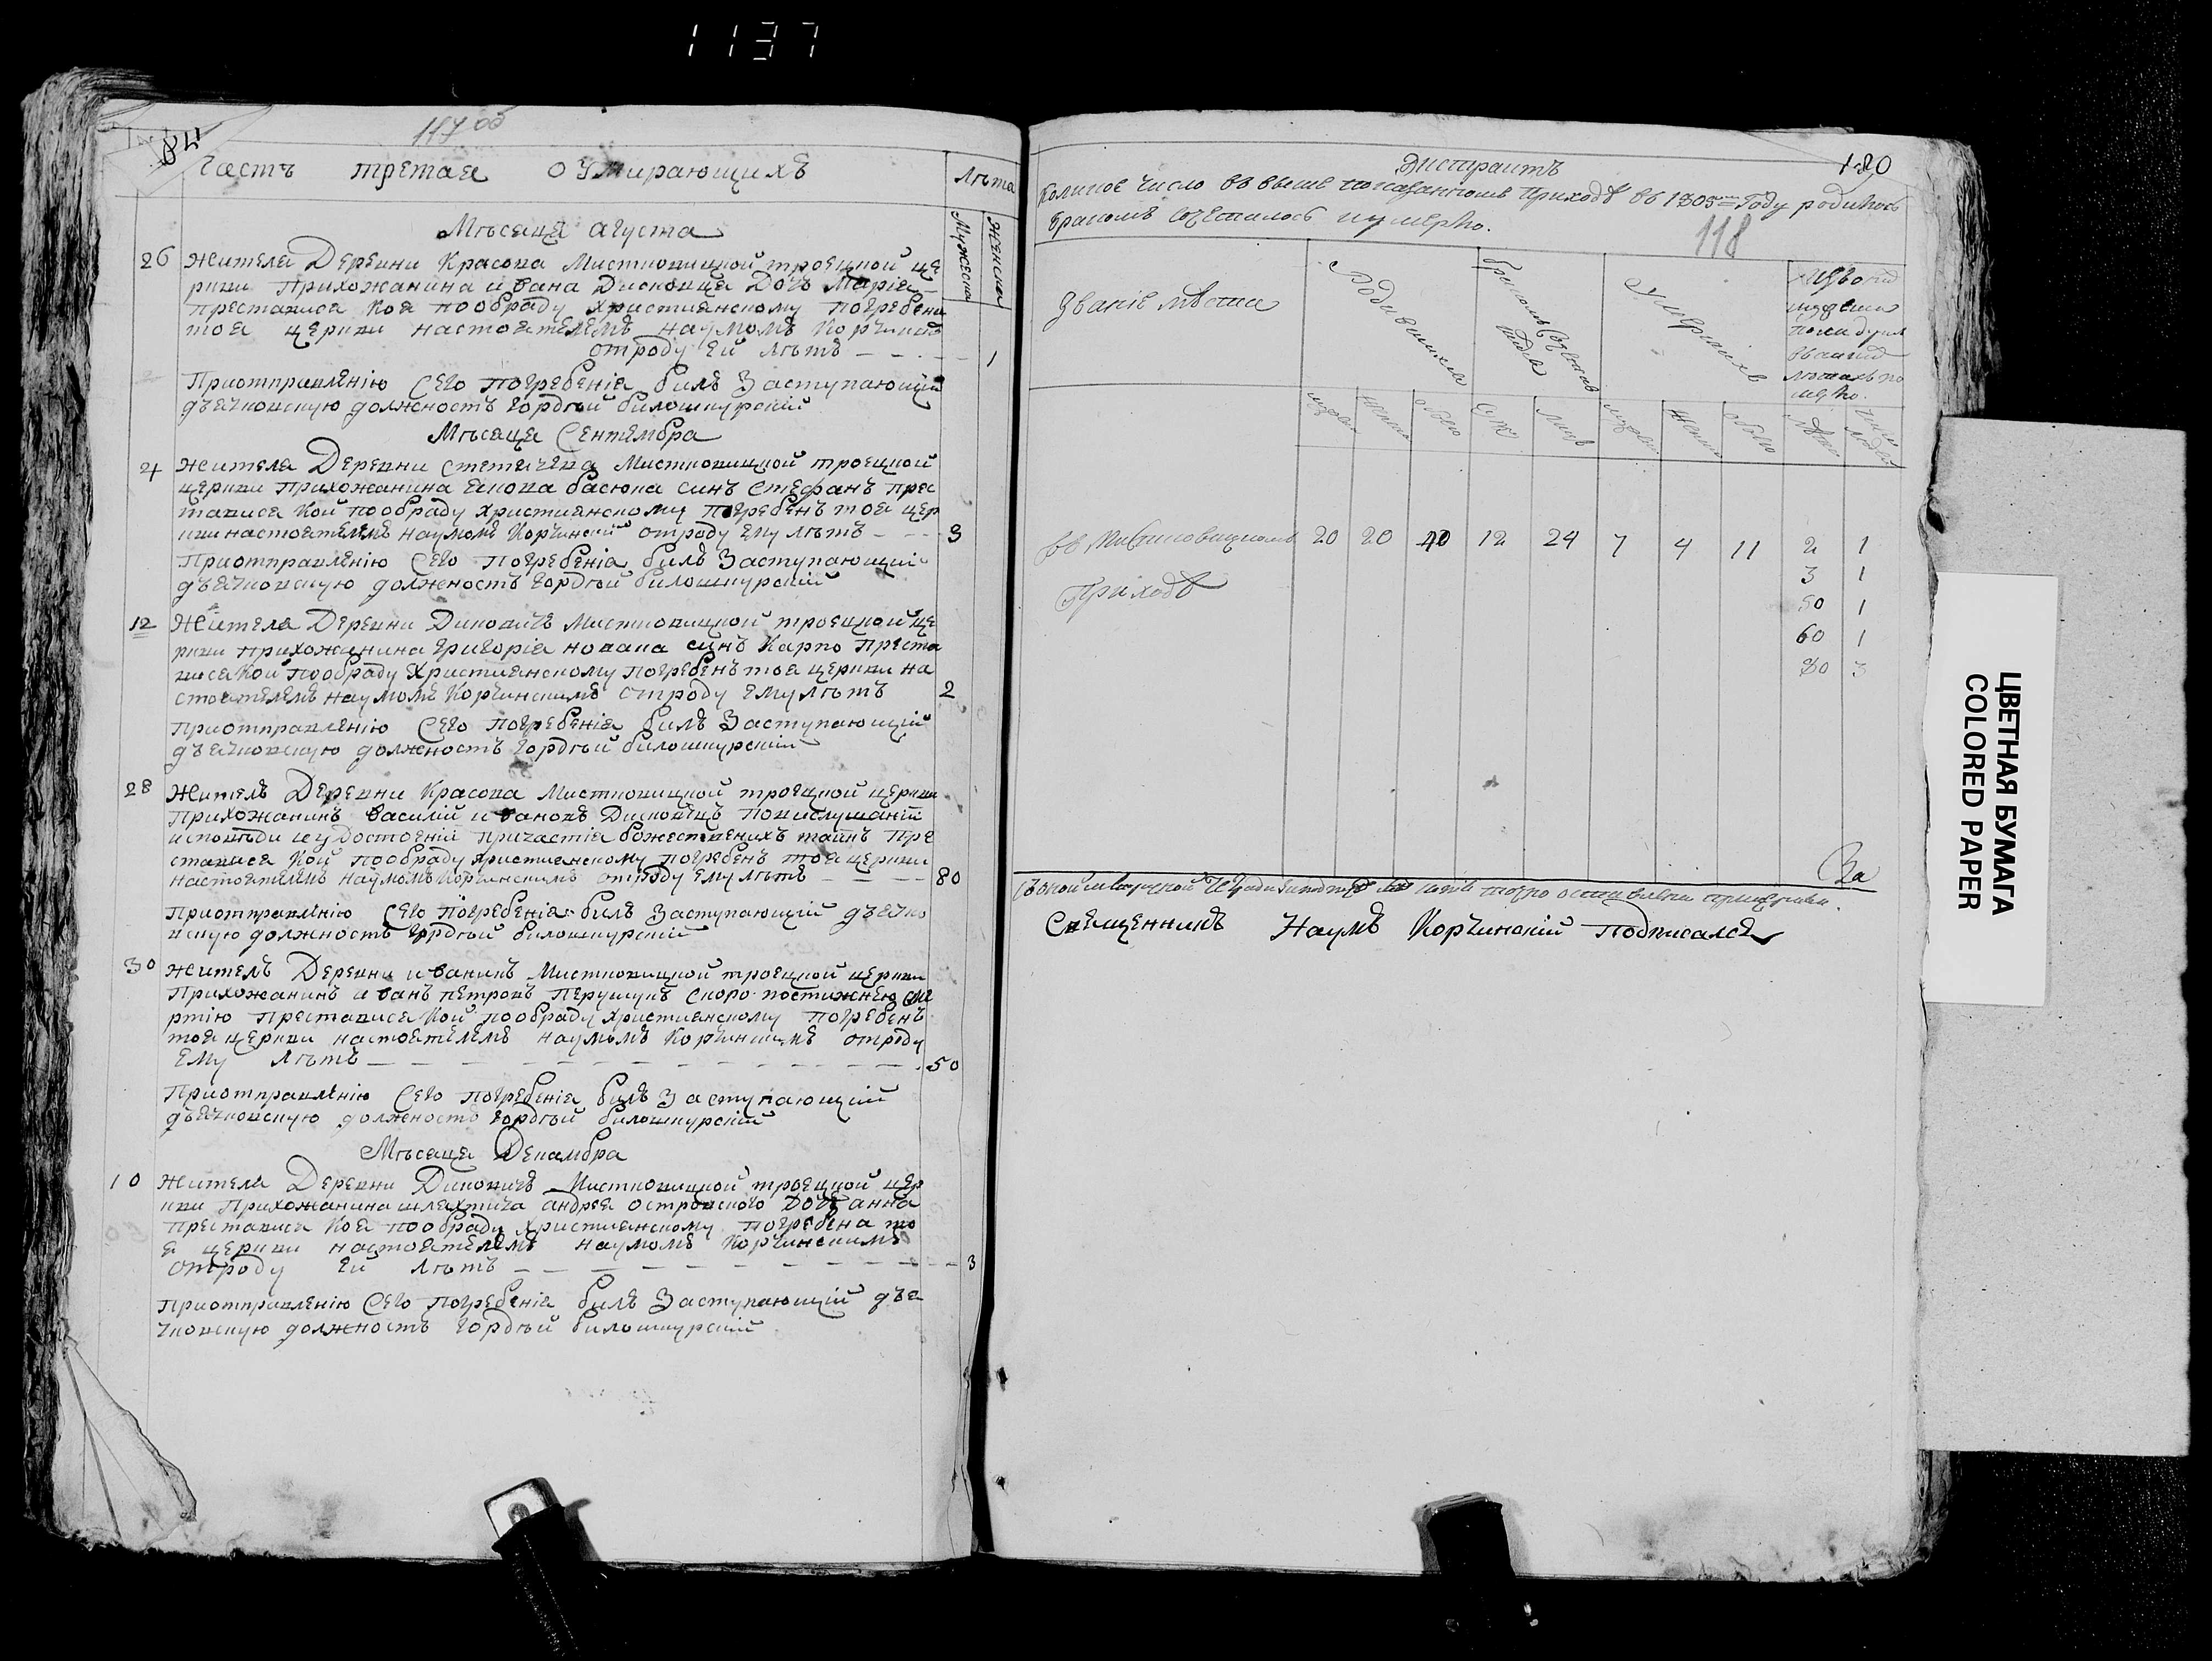 1137
117 об
Часть третая о Умирающихъ
Лѣта
Мужеска
Женска
Мѣсяца Августа
26 Жителя Деревни Красова Мистковицкой троецкой це
ркви Прихожанина ивана Дисковца Дочь Марія
Преставися Коя пообряду Христианскому погребена
тоя церкви настоятелемъ наумомъ Корчинск
отроду Ей лѣтъ 1
Приотправленію Сего погребенія билъ Заступающій
дъячковскую должность Гордѣй билошкурскій
Мѣсяца Сентембра
4 Жителя Деревни Стетичева Мистковицкой троецкой
церкви Прихожанина Якова басюка синъ Стефанъ Прес
тависа Кой пообряду Христианскому Погребенъ тоя цер
кви настоятелемъ наумомъ Корчинскй отроду Ему лѣтъ 3
Приотправленію Сего Погребенія билъ Заступающій
дъячковскую должность Гордѣй билошкурскій
12 Жителя Деревни Диковичъ Мистковицкой троецкой це
ркви прихожанина Григорія новака синъ Карпо Преста
виса Кой пообряду Христианскому погребенъ тоя церкви на
стоятелемъ наумомъ Корчинскимъ отроду Ему лѣтъ 2
Приотправленію Сего погребенія билъ Заступающій
дъячковскую должность Гордѣй билошкурскій
28 Житель Деревни Красова Мистковицкой троецкой церкви
Прихожанинъ Василій ивановъ Дисковецъ Повислушаній
исповѣди иудостоеній Причастія божественихъ тайнъ Пре
стависа Кой пообряду христианскому погребенъ тоя церкви
настоятелемъ наумомъ Корчинскимъ отроду Ему лѣтъ 80
Приотправленію Сего погребенія билъ Заступающій дъячко
вскую должность Гордѣй билошкурскій
30 Житель Деревни иваникъ Мистковицкой троецкой церкви
Прихожанинъ иванъ петровъ Перушукъ Скоро постижнею сме
ртію Преставися Кой пообряду христианскому погребенъ
тоя церкви настоятелемъ наумомъ Корчинскимъ отроду
Ему лѣтъ 50
Приотправленію Сего погребенія билъ Заступающій
дъячковскую должность Гордѣй билошкурскій
Мѣсяца Декамбра
10 Жителя Деревни Диковичъ Мистковицкой троецкой цер
кви Прихожанина шляхтича андрея островского Дочь анна
Преставися Коя пообряду христианскому погребена то
я церкви настоятелемъ наумомъ Корчинскимъ
отроду Ей лѣтъ 3
Приотправленію Сего погребенія билъ Заступающій дъя
чковскую должность Гордѣй билошкурскій
120
Коликое Число въ выше показанномъ Приходѣ въ 1805 Году родилось
бракомъ сочеталось и умерло.
118
Званіе мѣста
Родившихся
Умершихъ
въ Мистковицкомъ 20 20 40 12 24 7 4 11 2 1
Приходѣ
3 1
50 1
60 1
80 3
За
Священникъ Наумъ Корчинскій Подписался
ЦВЕТНАЯ БУМАГА
COLORED PAPER